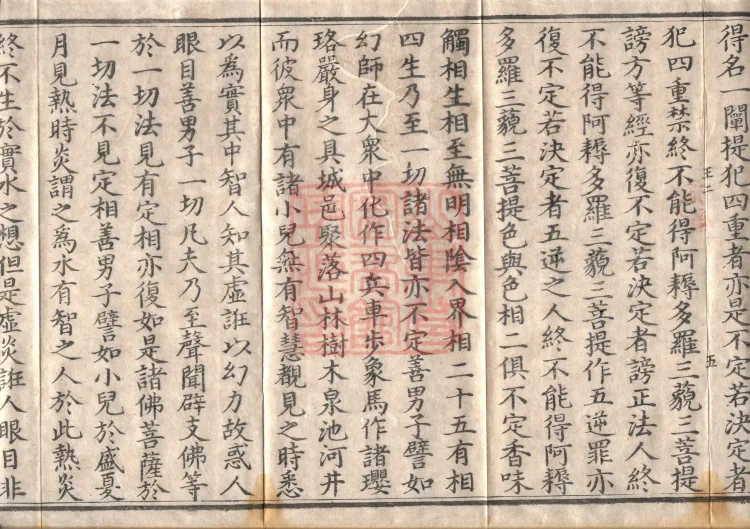 得名一闡提犯四重者亦是不定若決定者
犯四重禁終不能得阿耨多羅三藐三菩提
謗方等經亦復不定若決定者謗正法人終
不能得阿耨多羅三藐三菩提作五逆罪亦
復不定若決定者五逆之人終不能得阿耨
多羅三藐三菩提色與色相二俱不定香味
觸相生相至無明相陰入界相二十五有相
四生乃至一切諸法皆亦不定善男子譬如
幻師在大衆中化作四兵車步象馬作諸瓔
珞嚴身之具城邑聚落山林樹木泉池河井
而彼衆中有諸小兒無有智慧觀見之時悉
以為實其中智人知其虛誑以幻力故惑人
眼目善男子一切凡夫乃至聲聞辟支佛等
於一切法見有定相亦復如是諸佛菩薩於
一切法不見定相善男子譬如小兒於盛夏
月見熱時炎謂之為水有智之人於此熱炎
終不生於實水之想但是虛炎誑人眼目非